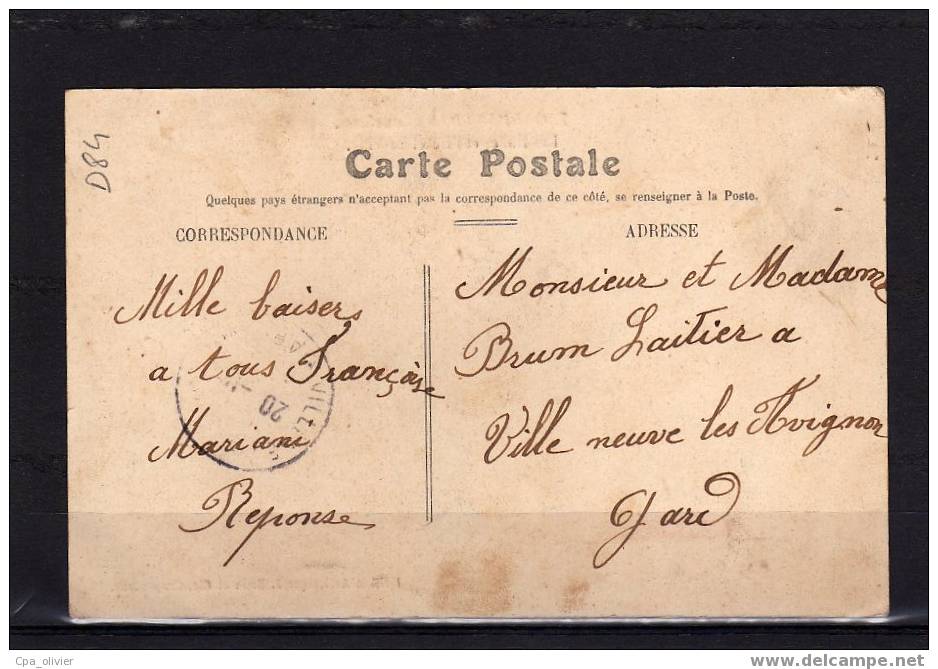 D84
Carte Postale
Quelques pays étrangers n'acceptant pas la correspondance de ce côté, se renseigner à la Poste.
CORRESPONDANCE
Mille baisers
a tous Françoise
Mariani
Reponse
ADRESSE
Monsieur et Madame
Brum Laitier a
Ville neuve les Avignon
Gard
20
Cpa_olivier
www.delcampe.net